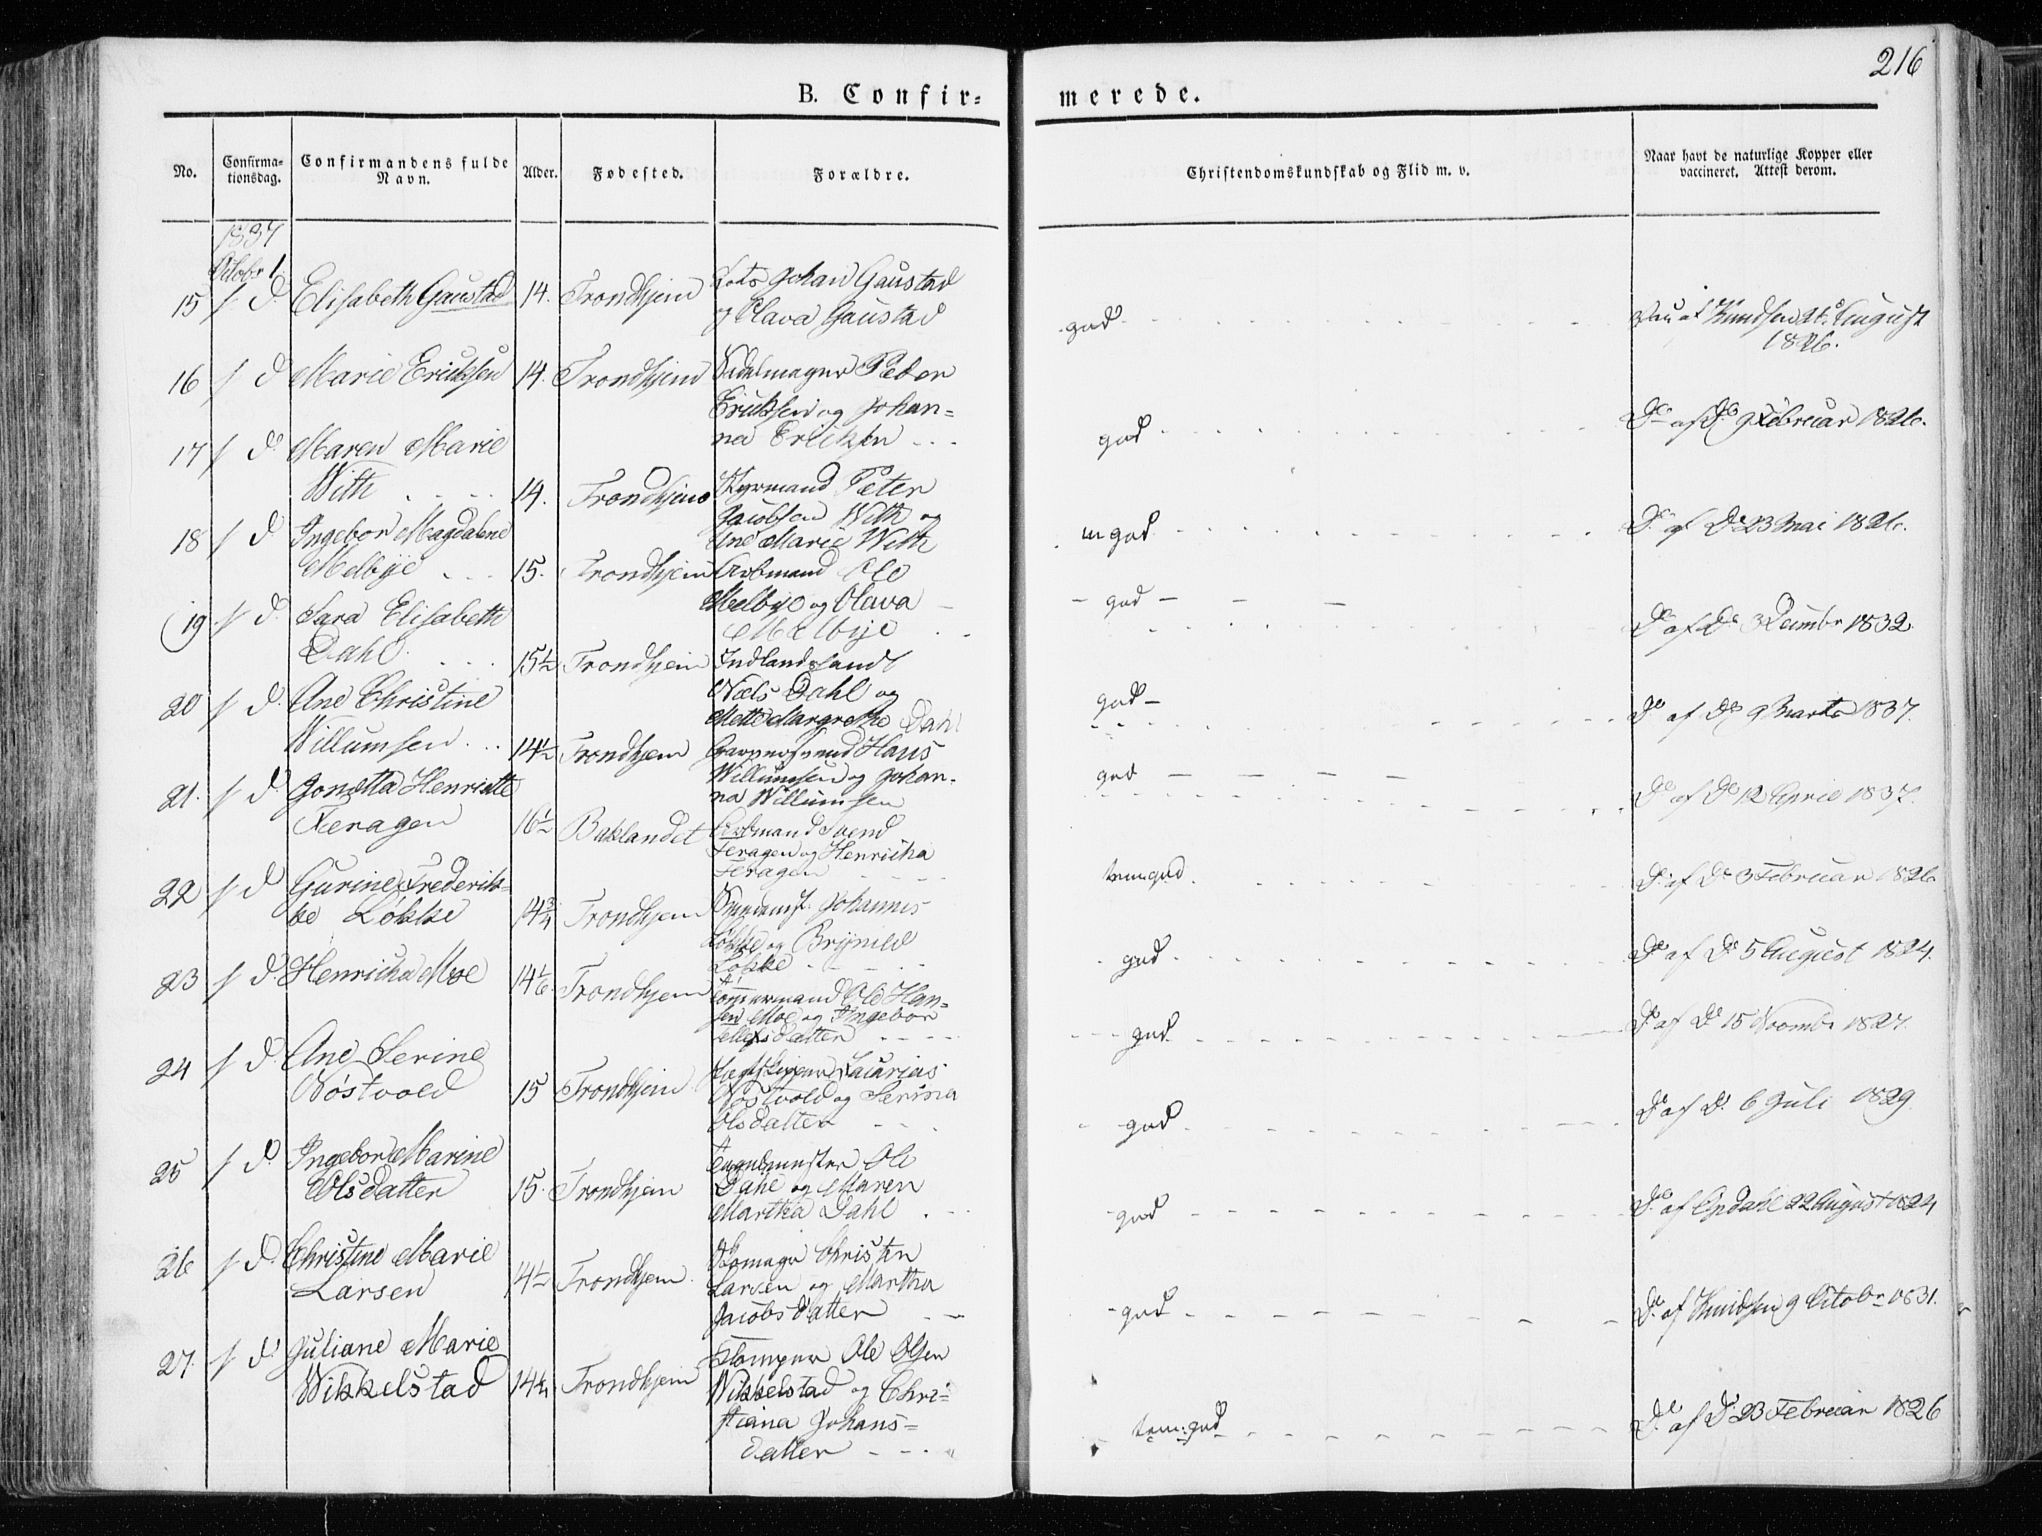 216
B. Confir= merede.
No. Confirma= tionsdag. Confirmandens fulde Navn. Alder. Fødested. Forældre. Christendomskundskab og Flid m. v. Naar havt de naturlige Kopper eller vaccineret. Attest derom.
1837
Octobr 1.
15 / d. Elisabeth Gaustad 14. Trondhjem Lods Johan Gaustad
og Olava Gaustad
god
Knudsen 26 August
1826.
16 / d Marie Eriksen 14. Trondhjem Sadelmager Peder
Eriksen og Johan=
na Eriksen
god
Do af Do 9 Februar 1826.
17 / d. Maren Marie
With 14. Trondhjem Styrmand Peter
Jacobsen With og
Ane Marie With
m god
Do af Do 23 Mai 1826.
18 / d Ingebor Magdalene
Melbye 15. Trondhjem Arbmand Ole
Melbye og Olava
Melbye
god
Do af Do 3 Decembr 1832.
19 / d. Sara Elisabeth
Dahl 15½ Trondhjem
Niels Dahl og
Mette Margrethe Dahl
god
Do af Do 9 Marts 1837.
20 / d. Ane Christine
Willumsen 14½ Trondhjem Hans
Willumsen og Johan-
na Willumsen
god
Do af Do 12 April 1837.
21. / d. Jonetta Henriette
Feragen 16½ Baklandet Arbmand Svend
Feragen og Henricha
Feragen
tem: god
Do af Do 3 Februar 1826
22 / d Gurine Frederik=
ke Løkke 14¾ Trondhjem Johannes
Løkke og Brynild
Løkke
god
Do af Do 5 August 1824.
23 / d. Henricha Moe 14 1/6 Trondhjem Tømmermand Ole Han=
sen Moe og Ingebor
god
Do af Do 15 Novembr 1827.
24 / d. Ane Serine
Røstvold 15 Trondhjem Zacarias
Røstvold og Serina
Olsdatter
god
Do af Do 6 Juli 1829
25 / d. Ingebor Marine
Olsdatter 15. Trondhjem Ole
Dahl og Maren
Martha Dahl
god
Do af Opdahl 22 August 1824
26 / d. Christine Marie
Larsen 14½ Trondhjem Skomager Christen
Larsen og Martha
Jacobsdatter
god
Do af Knudsen 9 Octobr 1831.
27. / d. Juliane Marie
Wikkelstad 14¼ Trondhjem Ole Olsen
Wikkelstad og Chri=
stiana Johans=
datter
tem: god
Do af Do 23 Februar 1826